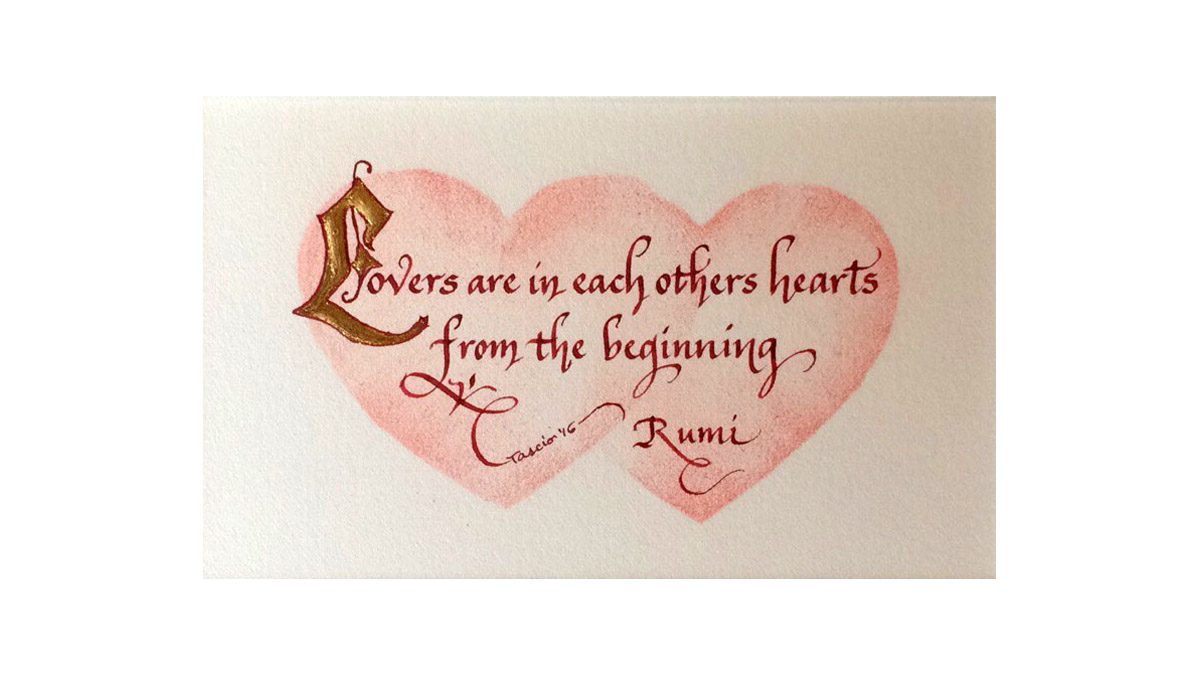 Lovers are in each others hearts
from the beginning
Rumi
'16